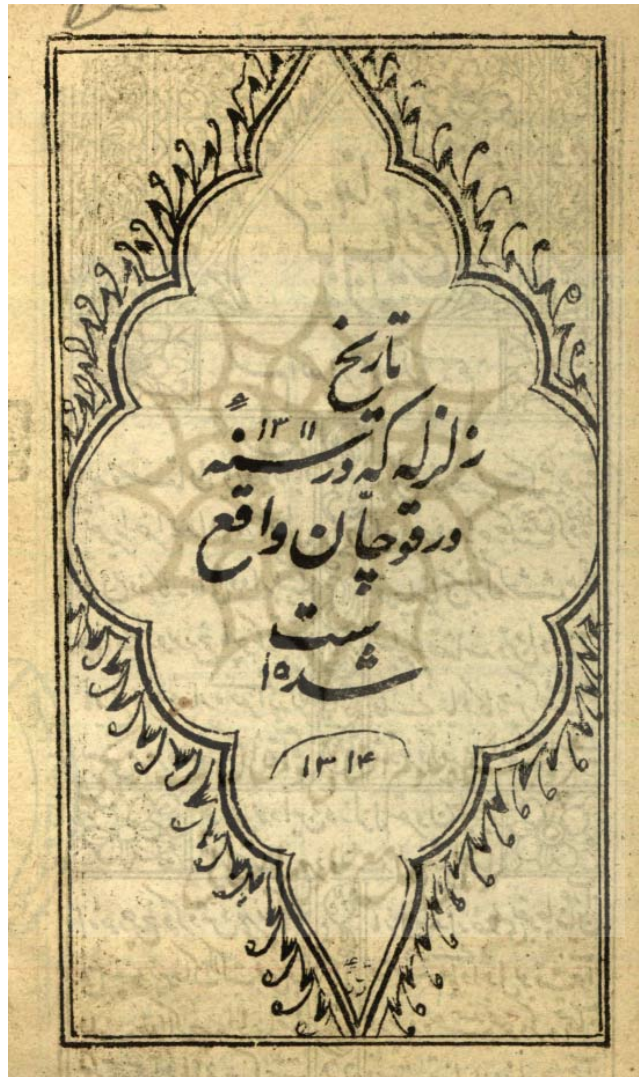 تاریخ
زلزله که در سنه ۱۳۱۱
در قوچان واقع
شده است
۱۳۱۴